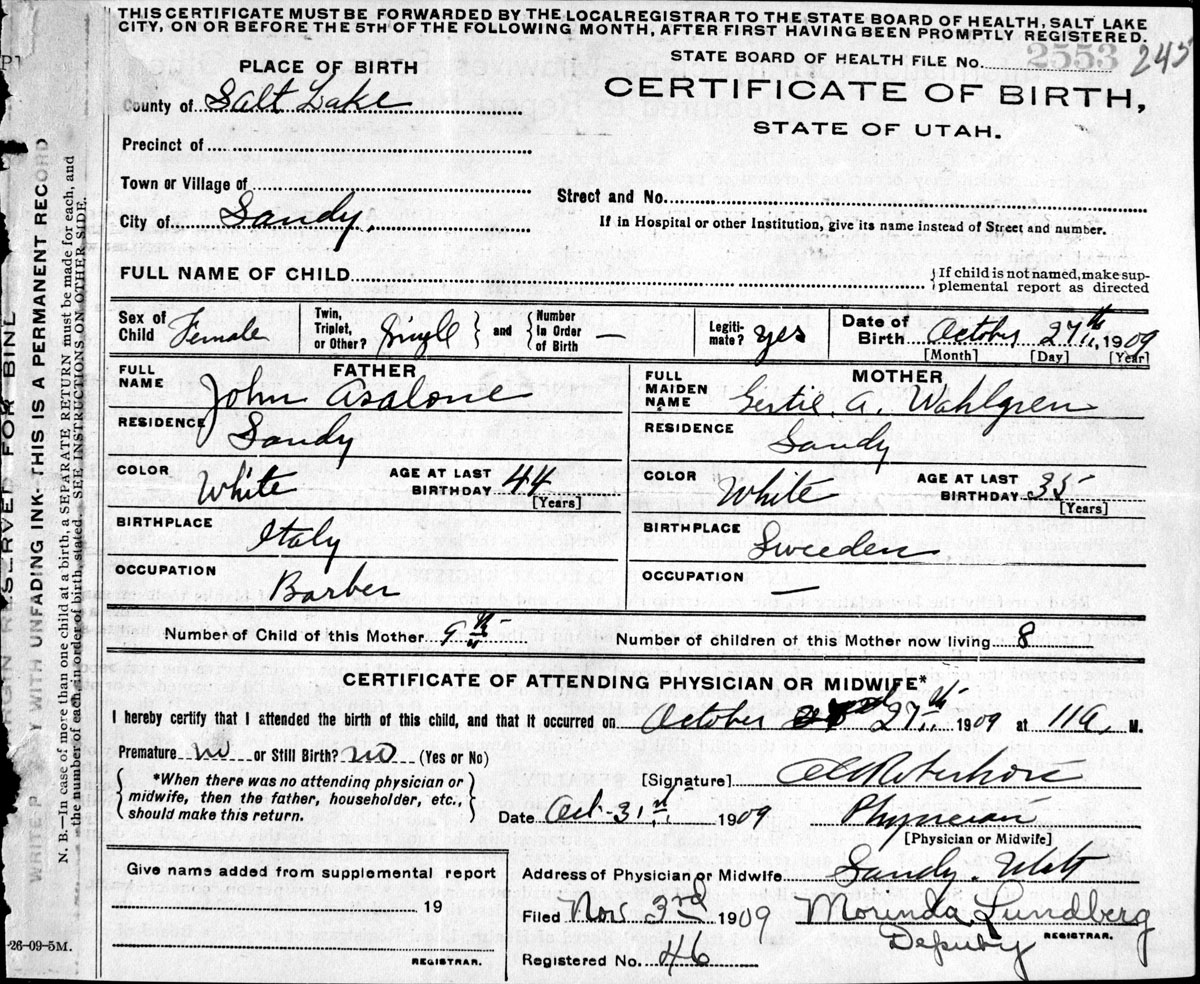 THIS CERTIFICATE MUST BE FORWARDED BY THE LOCALREGISTRAR TO THE STATE BOARD OF HEALTH, SALT LAKE
CITY, ON OR BEFORE THE 5TH OF THE FOLLOWING MONTH, AFTER FIRST HAVING BEEN PROMPTLY REGISTERED.
STATE BOARD OF HEALTH FILE No. 2553 245
PLACE OF BIRTH
CERTIFICATE OF BIRTH,
STATE OF UTAH.
County of Salt Lake
Precinct of
Town or Village of
Street and No.
City of Sandy.
If in Hospital or other Institution, give its name instead of Street and number.
FULL NAME OF CHILD
If child is not named, make sup-
plemental report as directed
Sex of Child Female
Twin, Triplet, or Other? Single and Number in Order of Birth —
Legiti-mate? yes
Date of Birth October 27th, 1909
[Month] [Day] [Year]
FATHER
FULL NAME John Asalone
RESIDENCE Sandy
COLOR White AGE AT LAST BIRTHDAY 44
[Years]
BIRTHPLACE Italy
OCCUPATION Barber
MOTHER
FULL MAIDEN NAME Gertie. A. Wahlgren
RESIDENCE Sandy
COLOR White AGE AT LAST BIRTHDAY 35
[Years]
BIRTHPLACE Sweeden
OCCUPATION —
Number of Child of this Mother 9th Number of children of this Mother now living 8
CERTIFICATE OF ATTENDING PHYSICIAN OR MIDWIFE*
I hereby certify that I attended the birth of this child, and that it occurred on October 27th 1909 at 11 a, M.
Premature no or Still Birth? no (Yes or No)
*When there was no attending physician or
midwife, then the father, householder, etc.,
should make this return.
[Signature]
Date Oct-31st 1909 Physician
[Physician or Midwife]
Give name added from supplemental report
19
REGISTRAR.
Address of Physician or Midwife Sandy. Utah
Filed Nov 3rd 1909 Morinda Lundberg
Deputy REGISTRAR.
Registered No. 46
-26-09-5M.
WRITE PLAINLY WITH UNFADING INK-THIS IS A PERMANENT RECORD
N. B.—In case of more than one child at a birth, a SEPARATE RETURN must be made for each, and
the number of each, in order of birth, stated. SEE INSTRUCTIONS ON OTHER SIDE.